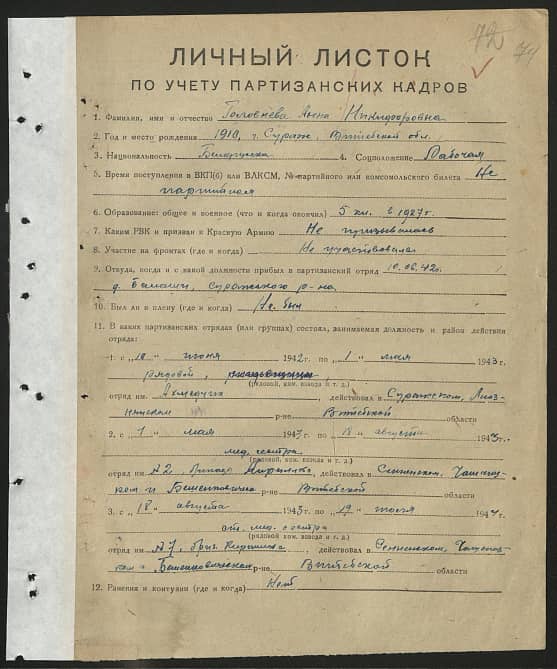 72 74
ЛИЧНЫЙ ЛИСТОК
ПО УЧЕТУ ПАРТИЗАНСКИХ КАДРОВ
1. Фамилия, имя и отчество Головнева Анна Никифоровна
2. Год и место рождения 1910, г. Сураж, Витебской обл.
3. Национальность Белоруска 4. Соцположение Рабочая
5. Время поступления в ВКП(б) или ВЛКСМ, № партийного или комсомольского билета Не
партийная
6. Образование: общее и военное (что и когда окончил) 5 кл. в 1927 г.
7. Каким РВК и призван в Красную Армию Не призывалась
8. Участие на фронтах (где и когда) Не участвовала
9. Откуда, когда и с какой должности прибыл в партизанский отряд 10.06.42г.
д. Суражского р-на
10. Был ли в плену (где и когда) Не был
11. В каких партизанских отрядах (или группах) состоял, занимаемая должность и район действия
отряда:
1. с „10" июня 1942 г. по „1" мая 1943 г.
рядовой,
(рядовой, ком. взвода и т. д.)
отряд им. действовал в Суражском, Лиоз-
ненском р-не Витебской области
2. с „1" мая 1943 г. по „18" августа 1943 г.
мед. сестра
(рядовой, ком. взвода и т. д.)
отряд им. действовал в Сенненском, Чашник-
ком и р-не Витебской области
3. с „18" августа 1943 г. по „19" июня 1944 г.
ст. мед. сестра
(рядовой, ком. взвода и т. д.)
отряд им. действовал в Сенненском,
Бешенковическом р-не Витебской области
12. Ранения и контузии (где и когда) Нет